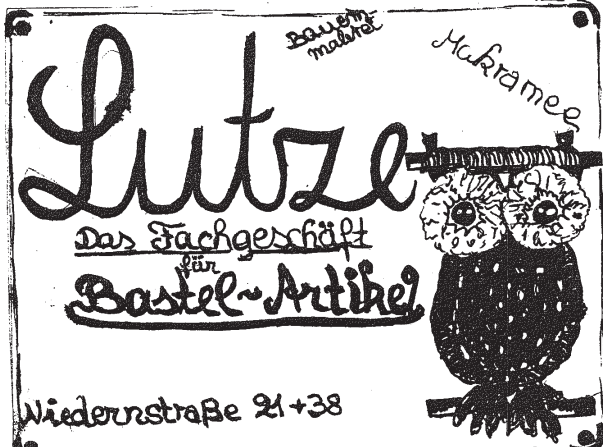 Bauern-
malerei
Makramee
Lutze
Das Fachgeschäft
für
Bastel-Artikel
Niedernstraße 21+38